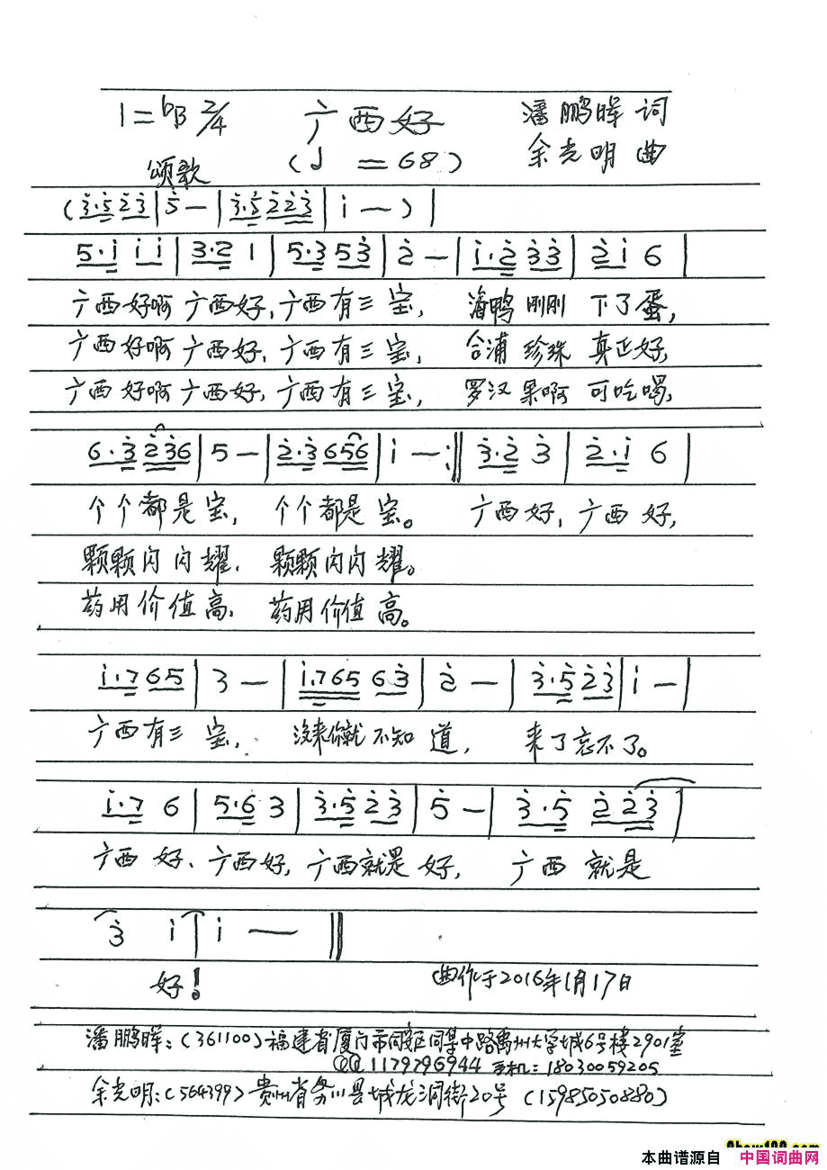 1=ᵇB 2/4 广西好 潘鹏晖 词
颂歌 (♩=68) 余光明 曲
(3̇·5̇ 2̇3̇|5̇ —|3̇·5̇ 2̇2̇3̇|1̇ —)|
5·1̇ 1̇1̇|3·2 1|5·3 53̇|2̇ —|1̇·2̇ 3̇3̇|2̇1̇ 6|
广西好啊 广西好,广西有三宝, 海鸭刚刚 下了蛋,
广西好啊 广西好,广西有三宝, 合浦珍珠 真正好,
广西好啊 广西好,广西有三宝, 罗汉果啊 可吃喝,
6·3̇ 2̇3̇6|5 —|2̇·3̇ 656|1̇ —:‖3̇·2̇ 3̇|2̇·1̇ 6|
个个都是宝, 个个都是宝。 广西好,广西好,
颗颗闪闪耀, 颗颗闪闪耀。
药用价值高, 药用价值高。
1̇·7 65|3 —|1̇·765 63̇|2̇ —|3̇·5̇ 2̇3̇|1̇ —|
广西有三宝, 没来你就不知道, 来了忘不了。
1̇·7 6|5·6 3|3̇·5̇ 2̇3̇|5̇ —|3̇·5̇ 2̇2̇3̇|
广西好、广西好,广西就是好, 广西就是
3̇ 1̇|1̇ — ‖
好! 曲作于2016年1月17日
潘鹏晖:(361100)福建省厦门市同安区同集中路禹州大学城6号楼2901室
QQ1179796944 手机:18030059205
余光明:(564399)贵州省务川县城龙洞街20号 (15985050880)
本曲谱源自 中国词曲网